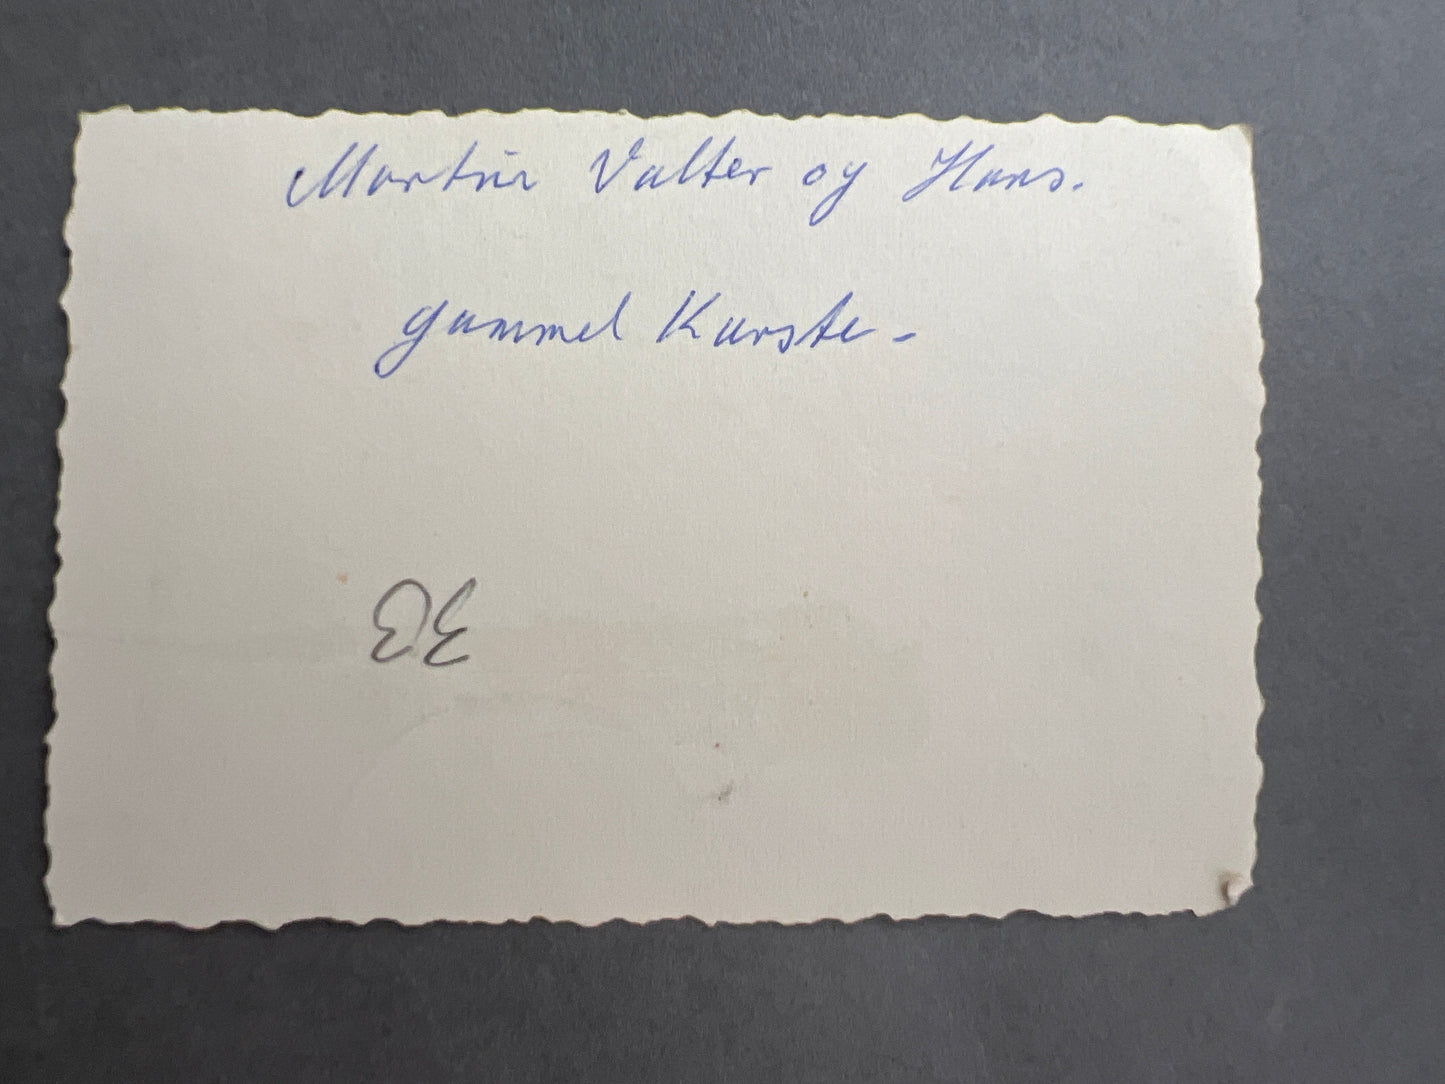 Martin Valter og Hans.
gammel Karste -